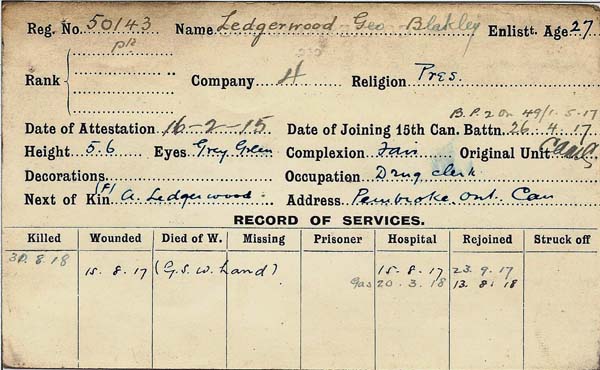 Reg. No. 50143 Name Ledgerwood Geo Blakley Enlistt. Age 27
Pte
Rank Company 4 Religion Pres.
B.P.2 Or 49/1-5-17
Date of Attestation 16-2-15 Date of Joining 15th Can. Battn. 26.4.17
Height 5.6 Eyes Grey Green Complexion Fair Original Unit
Decorations Occupation Drug clerk
Next of Kin (F) A. Ledgerwood Address Pembroke Ont. Can
RECORD OF SERVICES.
Killed Wounded Died of W. Missing Prisoner Hospital Rejoined Struck off
8.18 15.8.17 (G.S.W. hand) 15.8.17 23.9.17
Gas 20.3.18 13.8.18